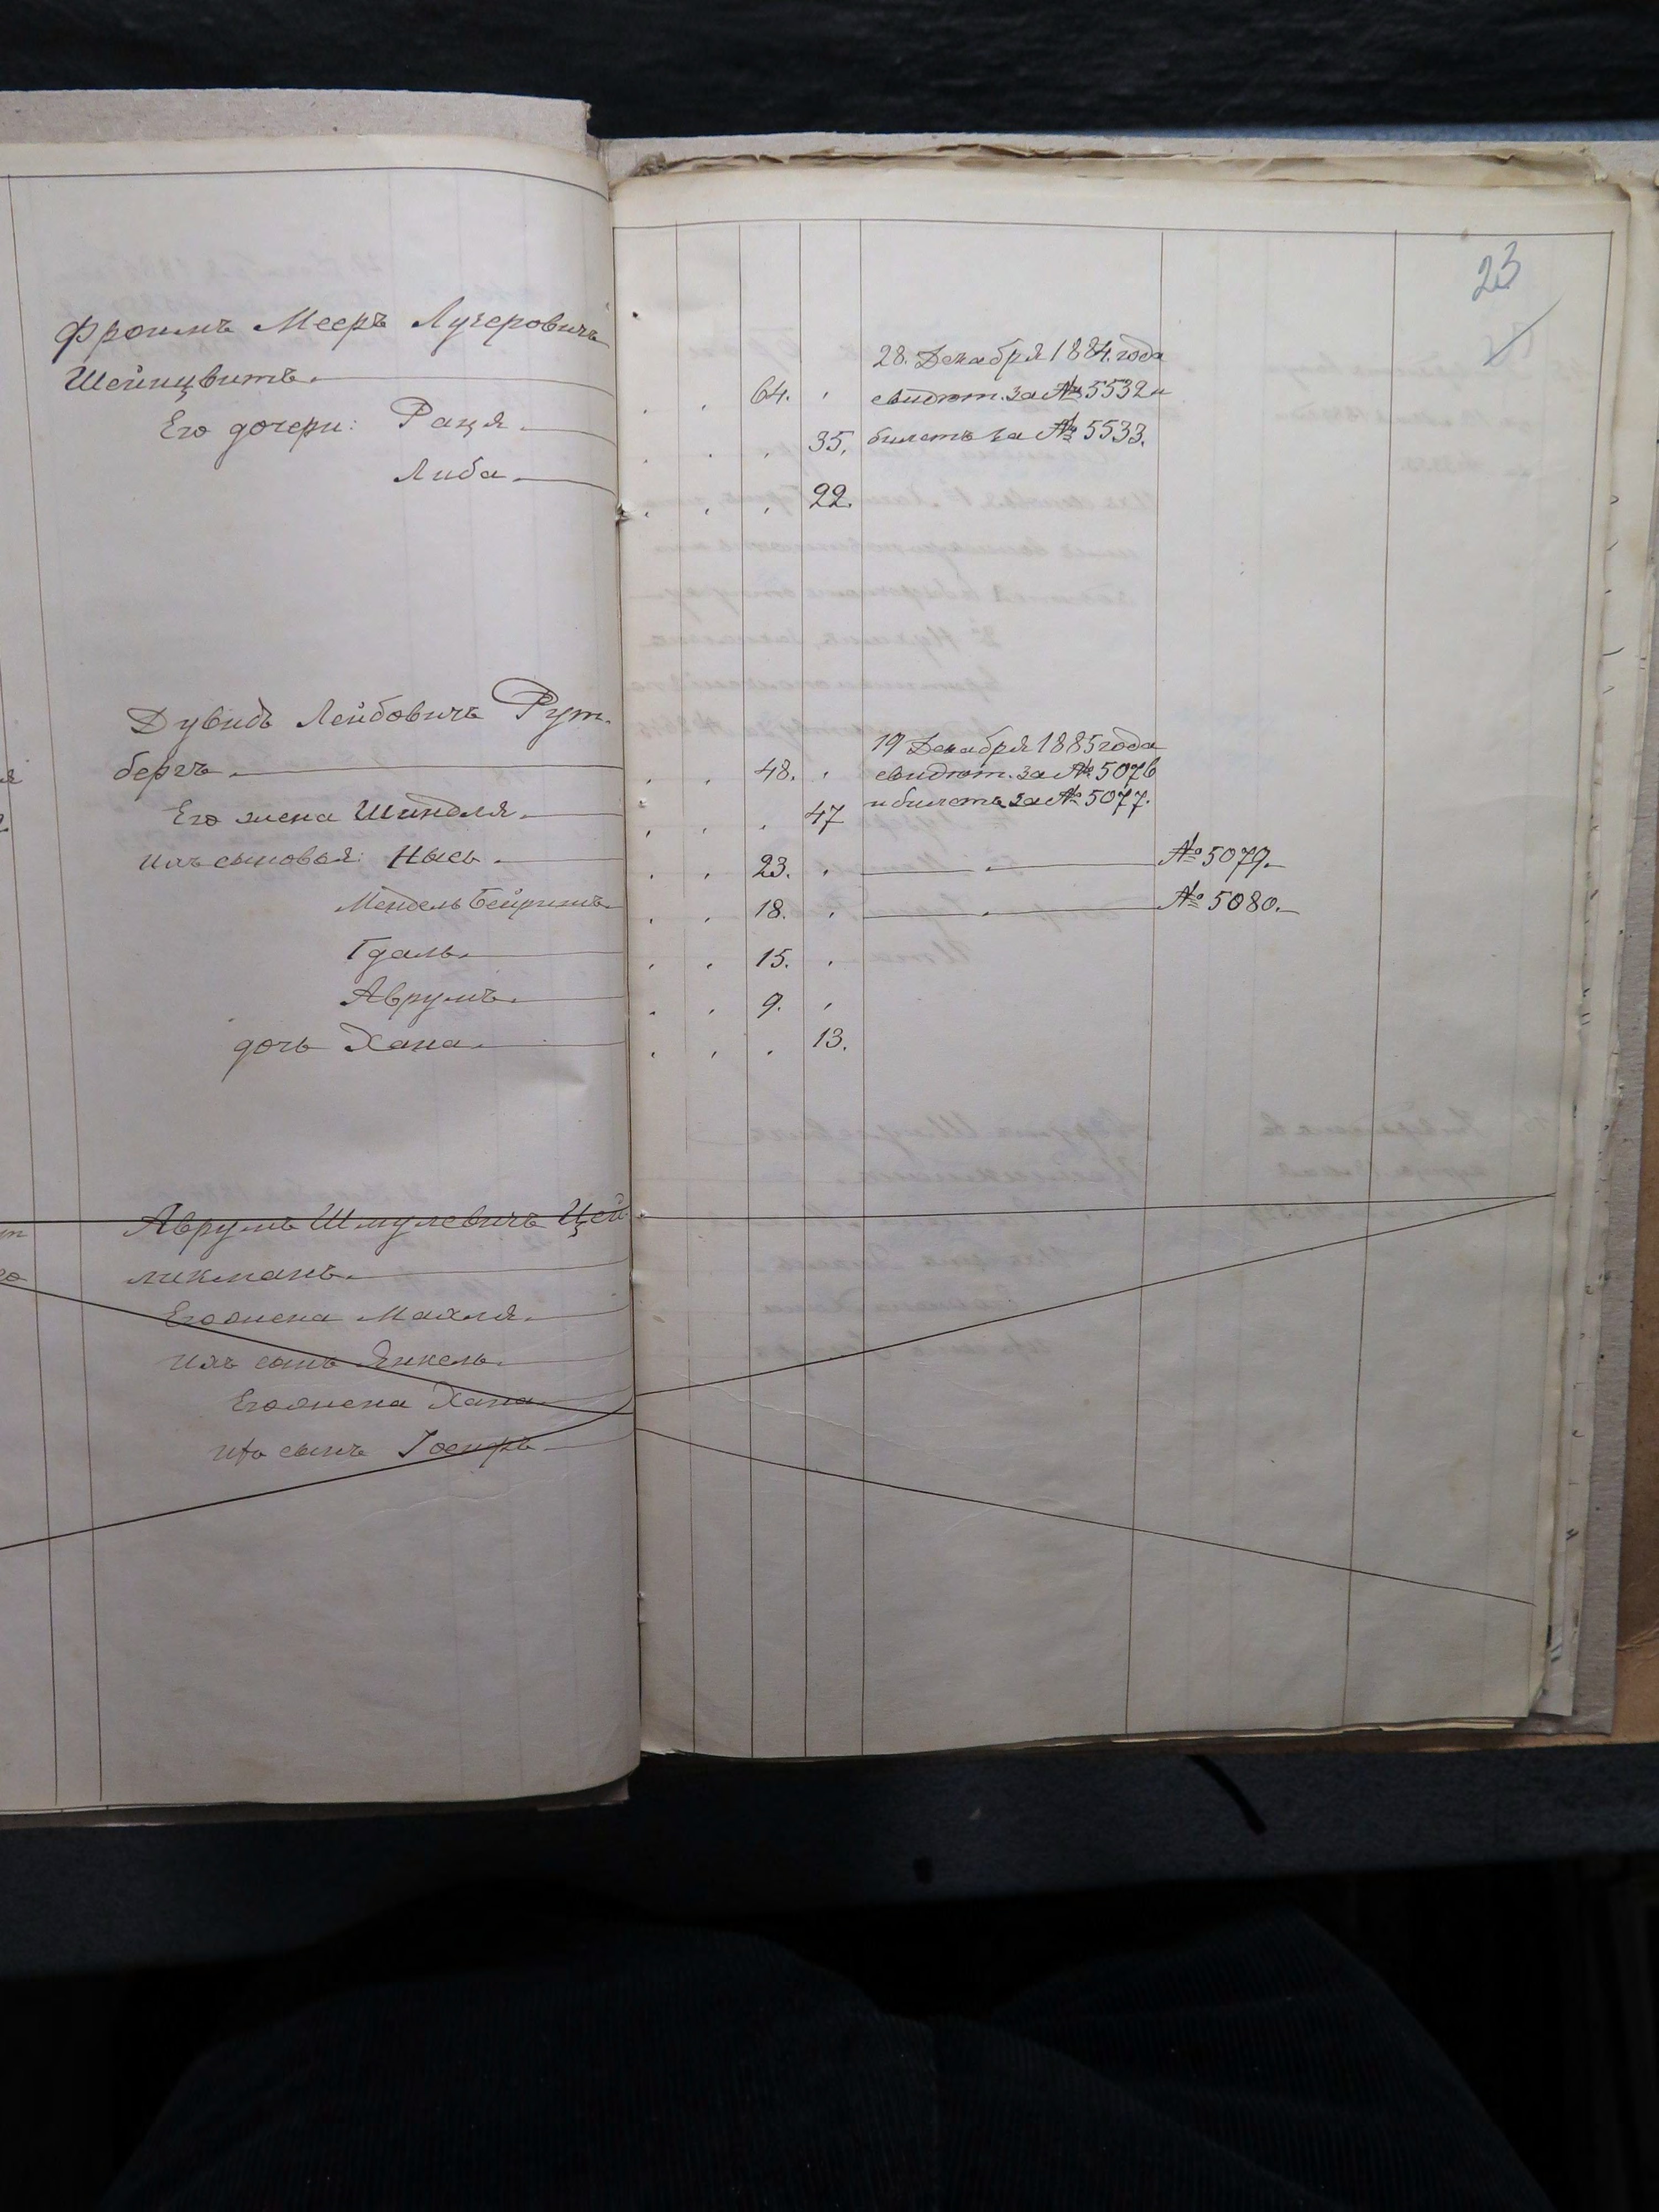 23
Фроимъ Мееръ Лузеровичъ
Шейнцвитъ.
64.
28. Декабря 1884. года
свидѣт. за № 5532 и
Его дочери: Рася.
35.
билетъ за № 5533.
Либа.
22.
Дувидъ Лейбовичъ Рут-
бергъ.
48.
19 Декабря 1885 года
свидѣт. за № 5076
и билетъ за № 5077.
Его жена Шиндля.
47
Ихъ сыновья: Нысь.
23.
№ 5079.
Мендель Бейришъ
18.
№ 5080.
Гдаль.
15.
Аврумъ.
9.
дочь Хана.
13.
Аврумъ Шмулевичъ Цей-
ликманъ.
Его жена Махля.
Ихъ сынъ Янкель.
Его жена Хана
Ихъ сынъ Іосифъ